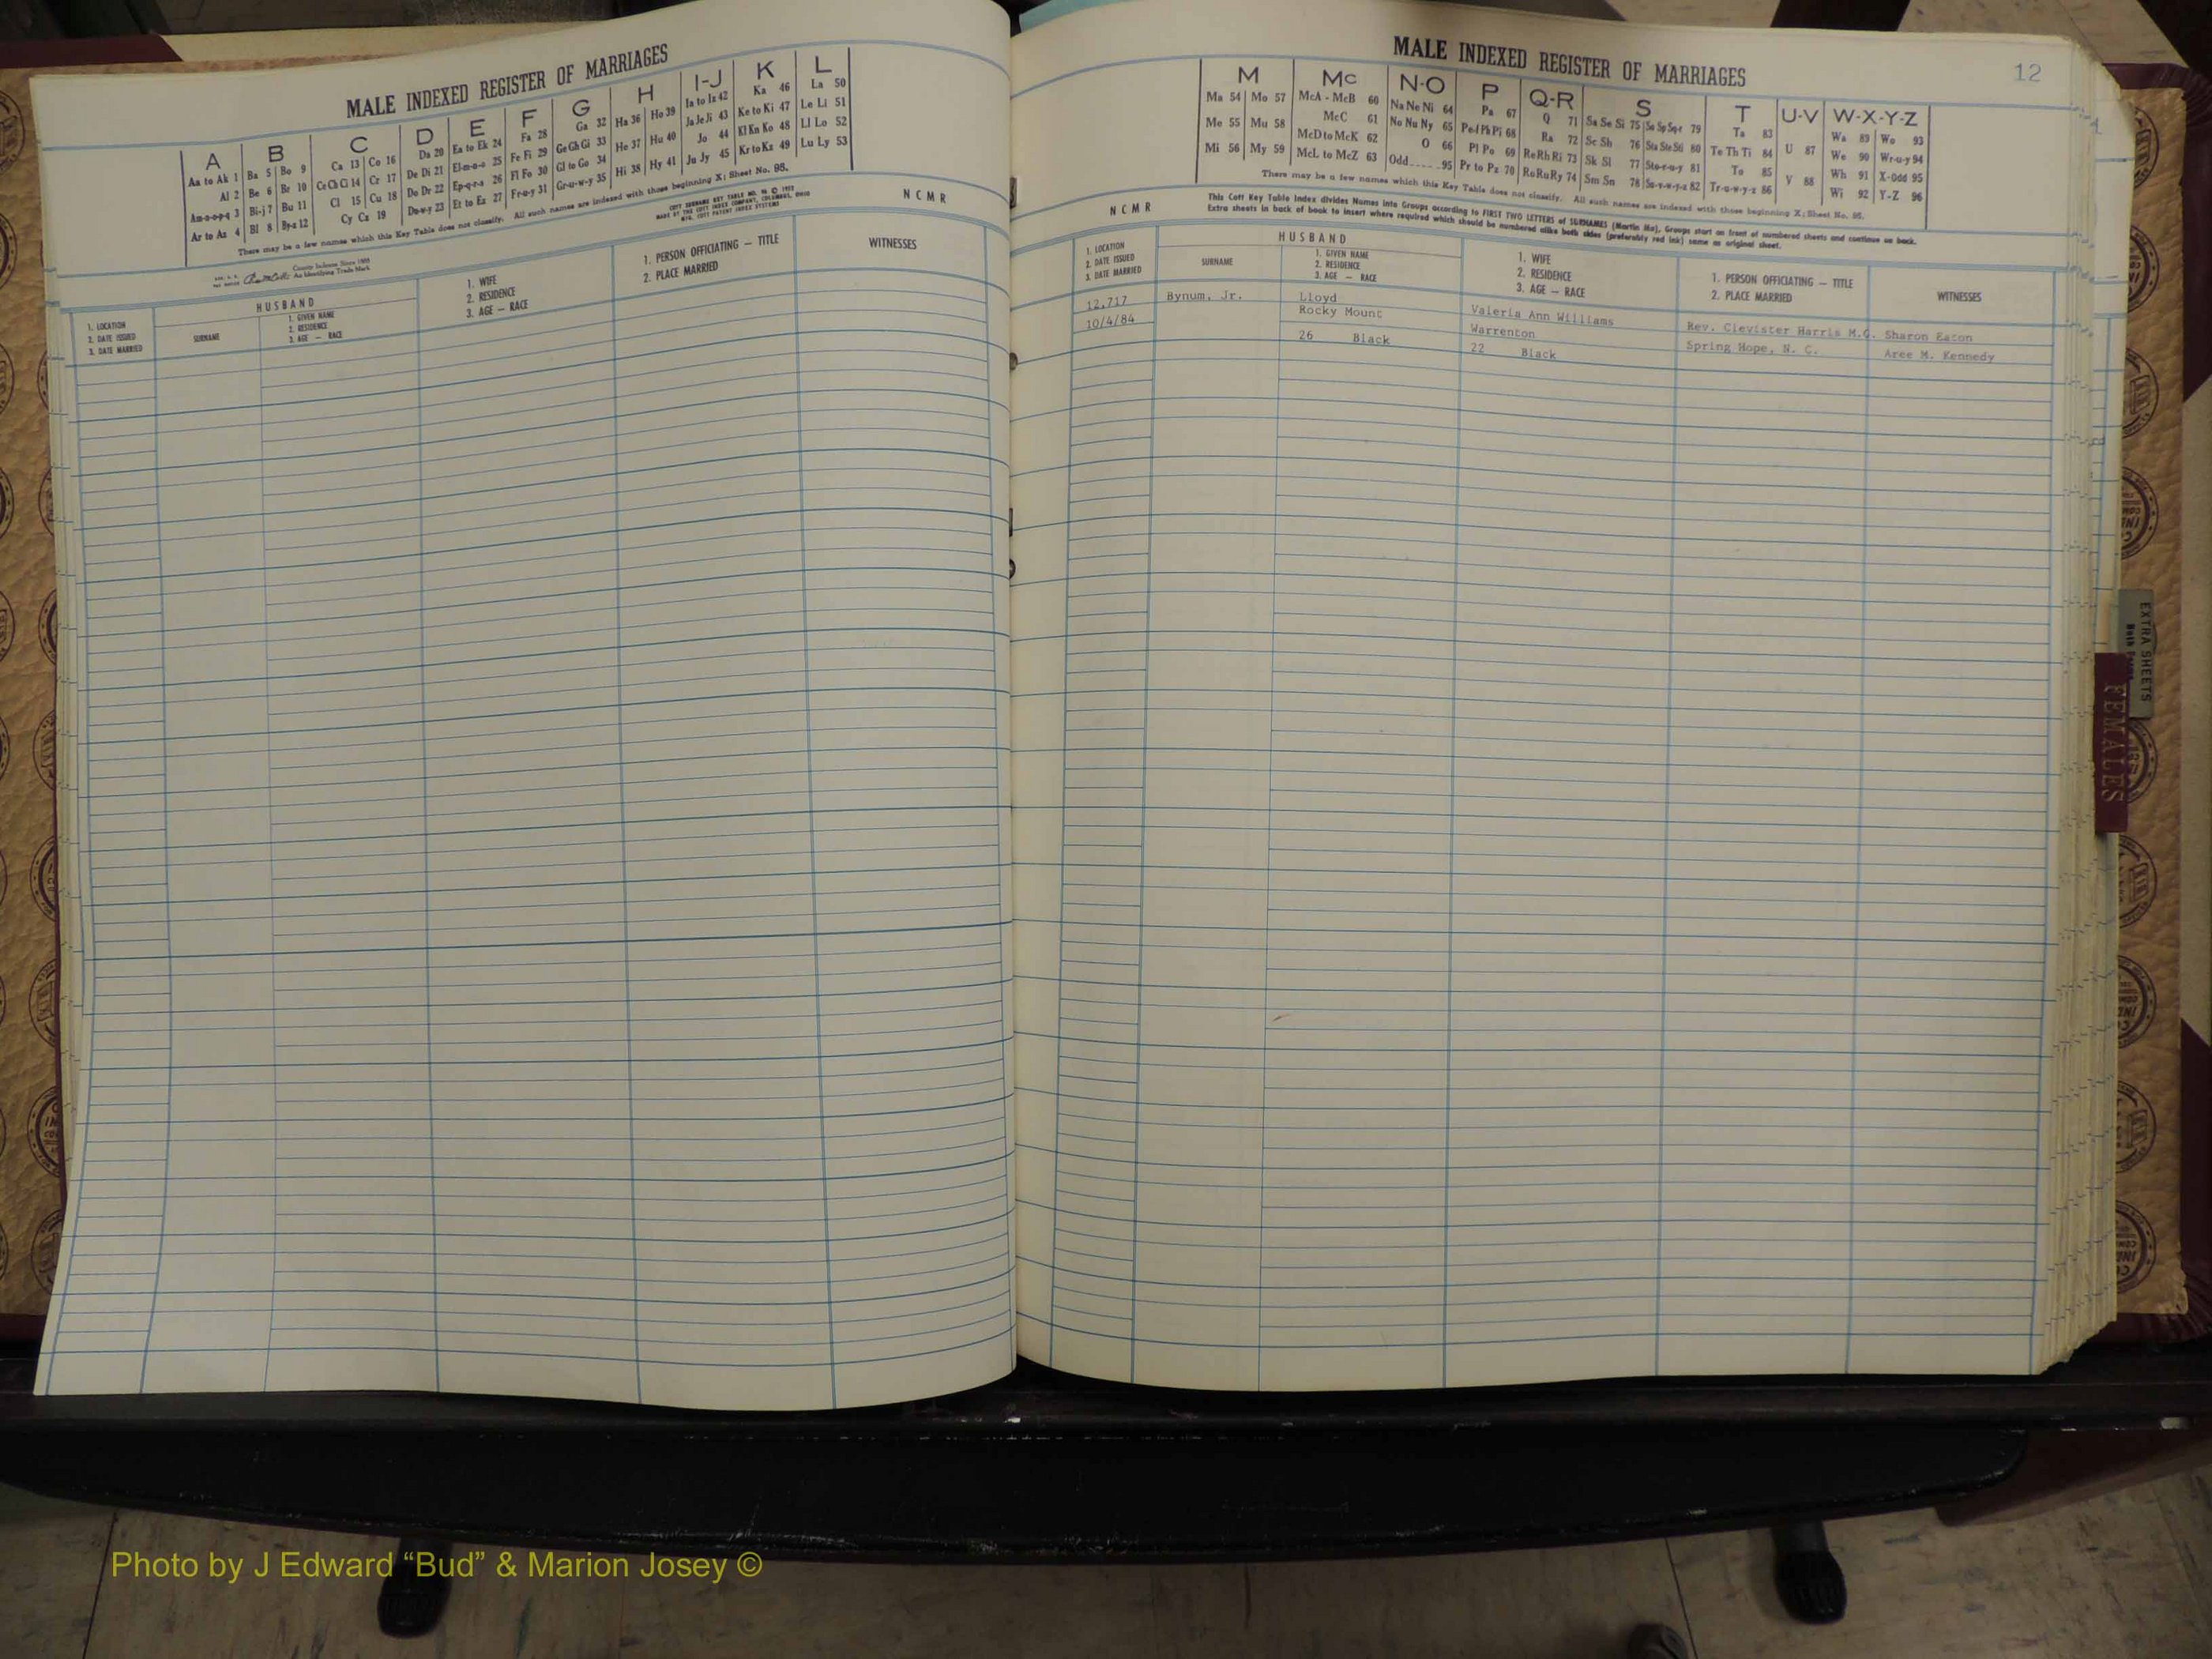 MALE INDEXED REGISTER OF MARRIAGES
A B C D E F G H I-J K L
Aa to Ak 1 Ba 5 Bo 9 Ca 13 Co 16 Da 20 Ea to Ek 24 Fa 28 Ga 32 Ha 36 Ho 39 Ia to Iz 42 Ka 46 La 50
Al 2 Be 6 Br 10 Ce Ch Ci 14 Cr 17 De Di 21 El-m-n-o 25 Fe Fi 29 Ge Gh Gi 33 He 37 Hu 40 Ja Je Ji 43 Ke to Ki 47 Le Li 51
Am-n-o-p-q 3 Bi-j 7 Bu 11 Cl 15 Cu 18 Do Dr 22 Ep-q-r-s 26 Fl Fo 30 Gl to Go 34 Hi 38 Hy 41 Jo 44 Kl Kn Ko 48 Ll Lo 52
Ar to Az 4 Bl 8 By-z 12 Cy Cz 19 Du-w-y 23 Et to Ez 27 Fr-u-y 31 Gr-u-w-y 35 Ju Jy 45 Kr to Kz 49 Lu Ly 53
There may be a few names which this Key Table does not classify. All such names are indexed with those beginning X; Sheet No. 95.
County Indexes Since 1888
An Identifying Trade Mark
COTT SURNAME KEY TABLE NO. 96 © 1972
MADE BY THE COTT INDEX COMPANY, COLUMBUS, OHIO
MFG. COTT PATENT INDEX SYSTEMS
NCMR
1. LOCATION
2. DATE ISSUED
3. DATE MARRIED
HUSBAND
SURNAME
1. GIVEN NAME
2. RESIDENCE
3. AGE — RACE
1. WIFE
2. RESIDENCE
3. AGE — RACE
1. PERSON OFFICIATING — TITLE
2. PLACE MARRIED
WITNESSES
MALE INDEXED REGISTER OF MARRIAGES
12
M Mc N-O P Q-R S T U-V W-X-Y-Z
Ma 54 Mo 57 McA - McB 60 Na Ne Ni 64 Pa 67 Q 71 Sa Se Si 75 So Sp Sq-r 79 Ta 83 U 87 Wa 89 Wo 93
Me 55 Mu 58 McC 61 No Nu Ny 65 Pe-f Ph Pi 68 Ra 72 Sc Sh 76 Sta Ste Sti 80 Te Th Ti 84 V 88 We 90 Wr-u-y 94
Mi 56 My 59 McD to McK 62 O 66 Pl Po 69 Re Rh Ri 73 Sk Sl 77 Sto-r-u-y 81 To 85 Wh 91 X-odd 95
McL to McZ 63 Odd 95 Pr to Pz 70 Ro Ru Ry 74 Sm Sn 78 Su-v-w-y-z 82 Tr-u-w-y-z 86 Wi 92 Y-Z 96
There may be a few names which this Key Table does not classify. All such names are indexed with those beginning X; Sheet No. 95.
This Cott Key Table Index divides Names into Groups according to FIRST TWO LETTERS of SURNAMES (Martin Ma), Groups start on front of numbered sheets and continue on back.
Extra sheets in back of book to insert where required which should be numbered alike both sides (preferably red ink) same as original sheet.
NCMR
1. LOCATION
2. DATE ISSUED
3. DATE MARRIED
HUSBAND
SURNAME
1. GIVEN NAME
2. RESIDENCE
3. AGE — RACE
1. WIFE
2. RESIDENCE
3. AGE — RACE
1. PERSON OFFICIATING — TITLE
2. PLACE MARRIED
WITNESSES
12,717 Bynum, Jr. Lloyd Valeria Ann Williams Rev. Clevister Harris M.G. Sharon Eaton
10/4/84 Rocky Mount Warrenton Spring Hope, N. C. Aree M. Kennedy
26 Black 22 Black
EXTRA SHEETS
FEMALES
Photo by J Edward “Bud” & Marion Josey ©